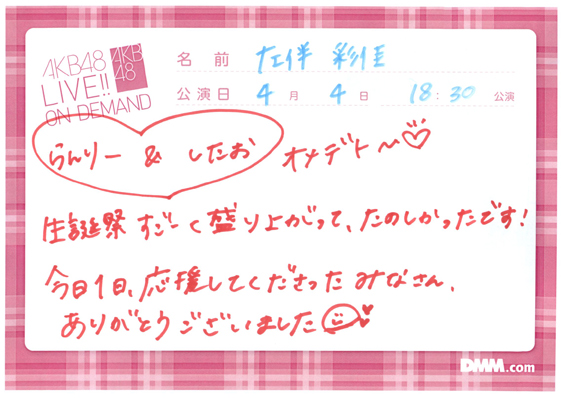 AKB48
LIVE!!
ON DEMAND
AKB
48
名前 左伴 彩佳
公演日 4月 4日 18:30 公演
らんりー & したお オメデト〜♡
生誕祭 すごーく盛り上がって、たのしかったです!
今日1日、応援してくださったみなさん、
ありがとうございました
DMM.com